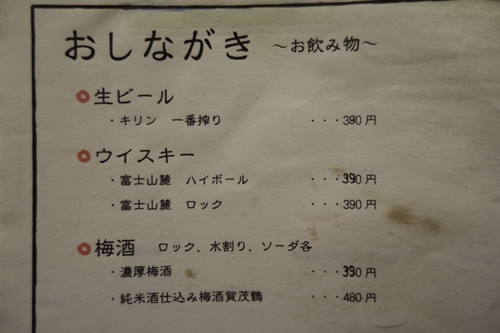 おしながき ～お飲み物～
生ビール
・キリン 一番搾り ・・・390円
ウイスキー
・富士山麓 ハイボール ・・・390円
・富士山麓 ロック ・・・390円
梅酒 ロック、水割り、ソーダ各
・濃厚梅酒 ・・・390円
・純米酒仕込み梅酒賀茂鶴 ・・・480円